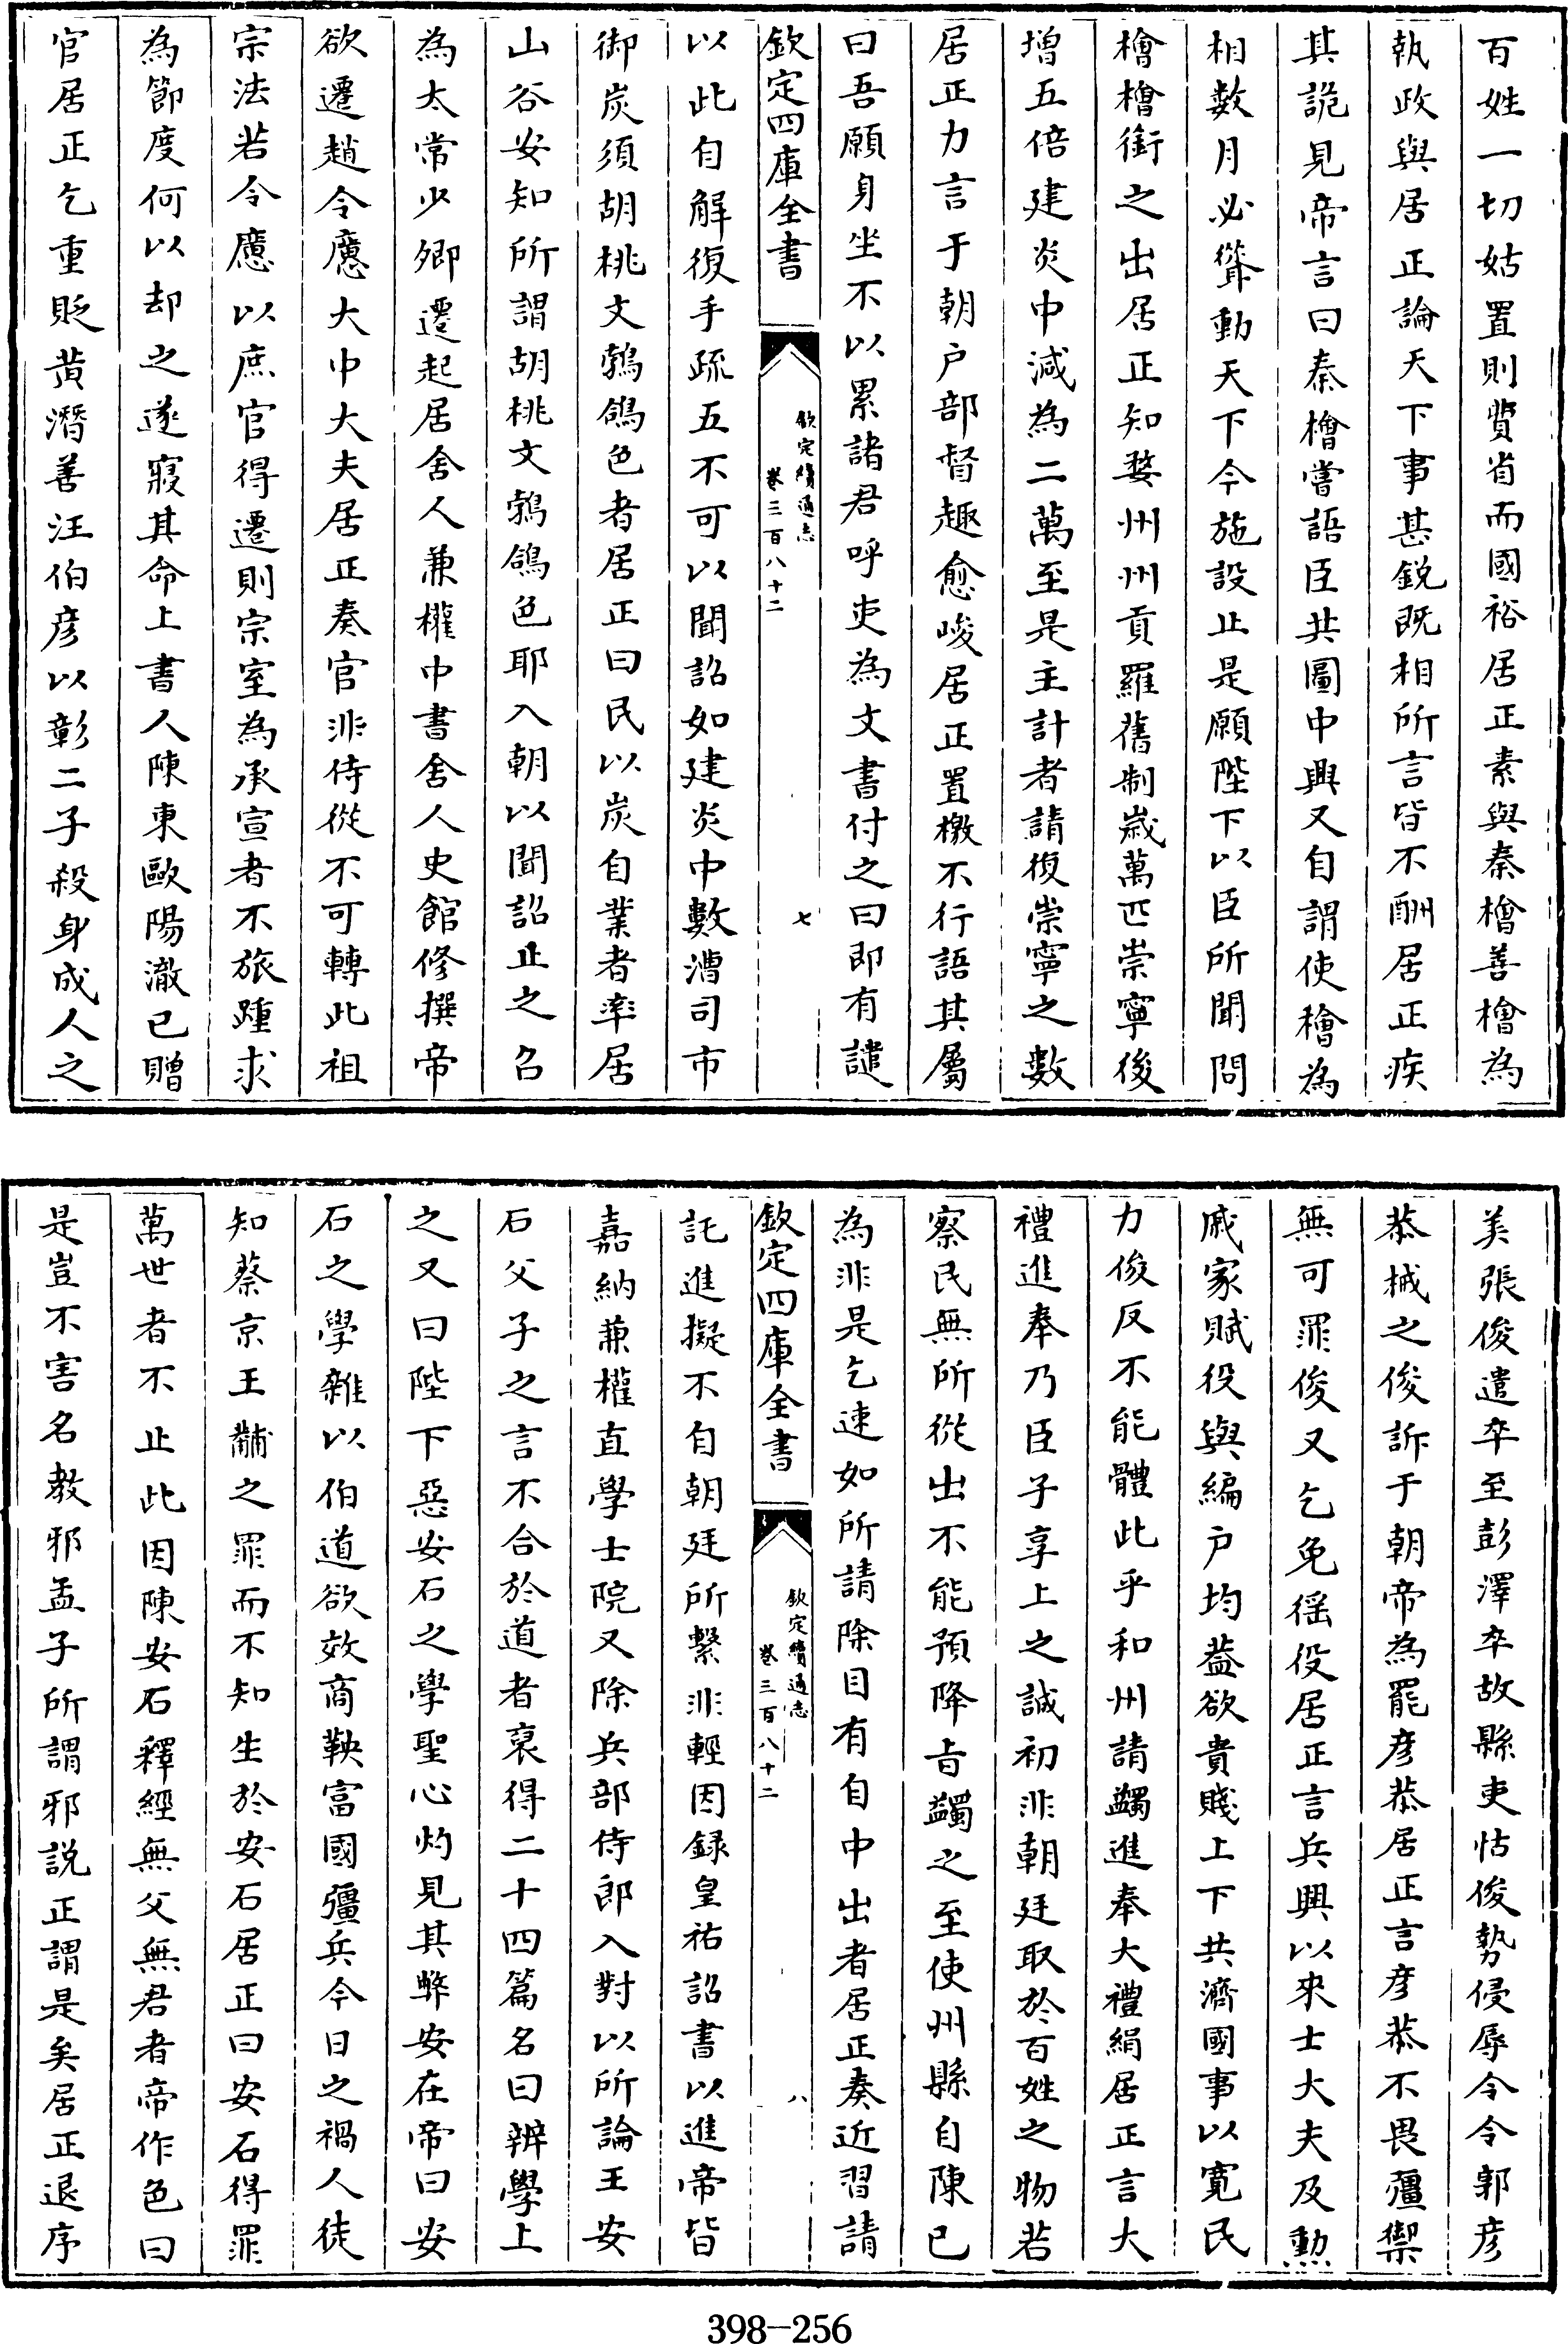 百姓一切姑置則費省而國裕居正素與秦檜善檜為
執政與居正論天下事甚鋭既相所言皆不酬居正疾
其詭見帝言曰秦檜嘗語臣共圖中興又自謂使檜為
相數月必聳動天下今施設止是願陛下以臣所聞問
檜檜銜之出居正知婺州州貢羅舊制歲萬匹崇寧後
增五倍建炎中減為二萬至是主計者請復崇寧之數
居正力言于朝户部督趣愈峻居正置檄不行語其屬
曰吾願身坐不以累諸君呼吏為文書付之曰即有譴
欽定四庫全書
欽定續通志
卷三百八十二
七
以此自解復手疏五不可以聞詔如建炎中數漕司市
御炭須胡桃文鶉鴿色者居正曰民以炭自業者率居
山谷安知所謂胡桃文鶉鴿色耶入朝以聞詔止之召
為太常少卿遷起居舍人兼權中書舍人史館修撰帝
欲遷趙令應大中大夫居正奏官非侍從不可轉此祖
宗法若令應以庶官得遷則宗室為承宣者不旅踵求
為節度何以却之遂寢其命上書人陳東歐陽澈已贈
官居正乞重貶黄潛善汪伯彦以彰二子殺身成人之
美張俊遣卒至彭澤卒故縣吏怙俊勢侵辱令令郭彦
恭械之俊訴于朝帝為罷彦恭居正言彦恭不畏彊禦
無可罪俊又乞免徭役居正言兵興以來士大夫及勲
戚家賦役與編户均葢欲貴賤上下共濟國事以寛民
力俊反不能體此乎和州請蠲進奉大禮絹居正言大
禮進奉乃臣子享上之誠初非朝廷取於百姓之物若
察民無所從出不能預降㫖蠲之至使州縣自陳已
為非是乞速如所請除目有自中出者居正奏近習請
欽定四庫全書
欽定續通志
卷三百八十二
八
託進擬不自朝廷所繫非輕因録皇祐詔書以進帝皆
嘉納兼權直學士院又除兵部侍郎入對以所論王安
石父子之言不合於道者裒得二十四篇名曰辨學上
之又曰陛下惡安石之學聖心灼見其弊安在帝曰安
石之學雜以伯道欲效商鞅富國彊兵今日之禍人徒
知蔡京王黼之罪而不知生於安石居正曰安石得罪
萬世者不止此因陳安石釋經無父無君者帝作色曰
是豈不害名教邪孟子所謂邪説正謂是矣居正退序
398-256